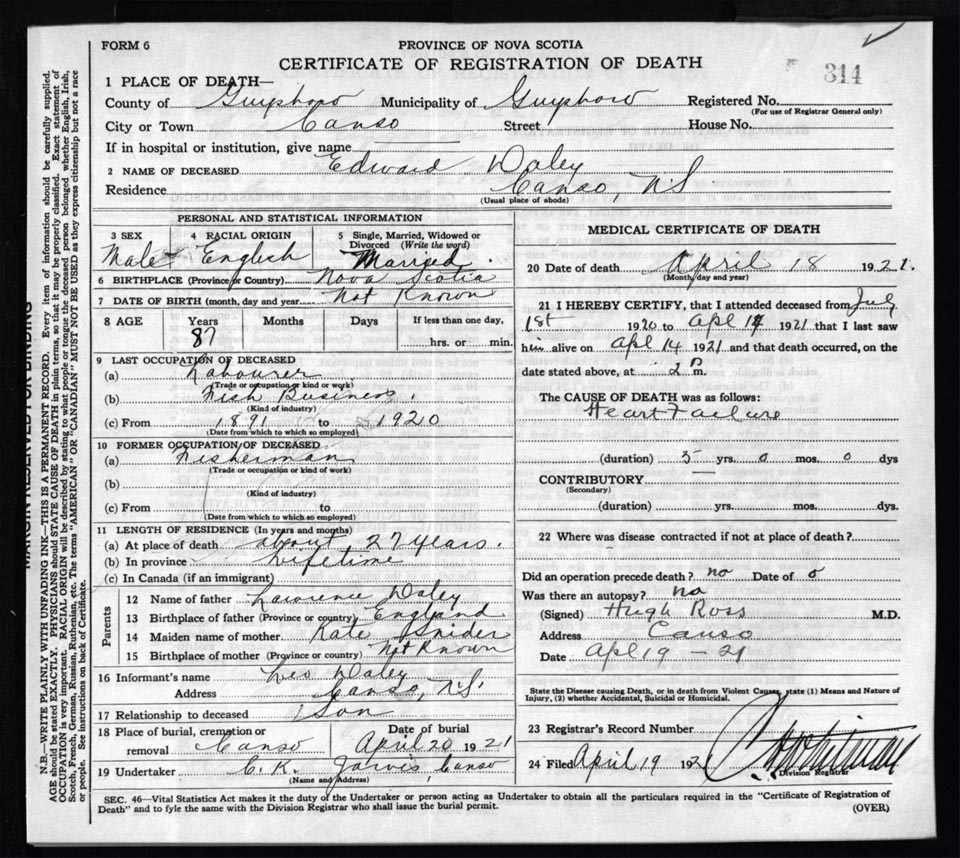 FORM 6
PROVINCE OF NOVA SCOTIA
CERTIFICATE OF REGISTRATION OF DEATH
314
1 PLACE OF DEATH—
County of Guysboro Municipality of Guysboro Registered No.
(For use of Registrar General only)
City or Town Canso Street House No.
If in hospital or institution, give name
2 NAME OF DECEASED Edward Daley
Residence Canso, N.S
(Usual place of abode)
PERSONAL AND STATISTICAL INFORMATION
3 SEX 4 RACIAL ORIGIN 5 Single, Married, Widowed or Divorced (Write the word)
Male English Married.
6 BIRTHPLACE (Province or Country) Nova Scotia
7 DATE OF BIRTH (month, day and year) Not Known
8 AGE Years Months Days If less than one day,
87 hrs. or min.
9 LAST OCCUPATION OF DECEASED
(a) Labourer
(Trade or occupation or kind or work)
(b) Fish Business.
(Kind of industry)
(c) From 1891 to 1920
(Date from which to which so employed)
10 FORMER OCCUPATION OF DECEASED
(a) Fisherman
(Trade or occupation or kind of work)
(b)
(Kind of industry)
(c) From to
(Date from which to which so employed)
11 LENGTH OF RESIDENCE (In years and months)
(a) At place of death about 27 years.
(b) In province Lifetime
(c) In Canada (if an immigrant)
Parents
12 Name of father Lawrence Daley
13 Birthplace of father (Province or country) England
14 Maiden name of mother Kate Snider
15 Birthplace of mother (Province or country) Not Known
16 Informant's name Leo Daley
Address Canso, N.S.
17 Relationship to deceased Son
18 Place of burial, cremation or removal Canso
Date of burial April 20 1921
19 Undertaker C. K. Jarvis, Canso
(Name and Address)
MEDICAL CERTIFICATE OF DEATH
20 Date of death April 18 1921.
(Month, day and year)
21 I HEREBY CERTIFY, that I attended deceased from July
1st 1920 to Apl 14 1921 that I last saw
him alive on Apl 14 1921 and that death occurred, on the
date stated above, at 2 P m.
The CAUSE OF DEATH was as follows:
Heart Failure
(duration) 5 yrs. 0 mos. 0 dys
CONTRIBUTORY
(Secondary)
(duration) yrs. mos. dys.
22 Where was disease contracted if not at place of death?
Did an operation precede death? no Date of 0
Was there an autopsy? no
(Signed) Hugh Ross M.D.
Address Canso
Date Apl 19 - 21
State the Disease causing Death, or in death from Violent Causes, state (1) Means and Nature of
Injury, (2) whether Accidental, Suicidal or Homicidal.
23 Registrar's Record Number
24 Filed April 19 1921
Division Registrar
SEC. 46—Vital Statistics Act makes it the duty of the Undertaker or person acting as Undertaker to obtain all the particulars required in the "Certificate of Registration of
Death" and to fyle the same with the Division Registrar who shall issue the burial permit.
(OVER)
MARGIN RESERVED FOR BINDING
N.B.—WRITE PLAINLY WITH UNFADING INK—THIS IS A PERMANENT RECORD. Every item of information should be carefully supplied.
AGE should be stated EXACTLY. PHYSICIANS should STATE CAUSE OF DEATH in plain terms, so that it may be properly classified. Exact statement of
OCCUPATION is very important. RACIAL ORIGIN will be described by stating to what people or tongue the deceased person belonged whether English, Irish,
Scotch, French, German, Russian, Ruthenian, etc. The terms "AMERICAN" or "CANADIAN" MUST NOT BE USED as they express citizenship but not a race
or people. See instructions on back of Certificate.